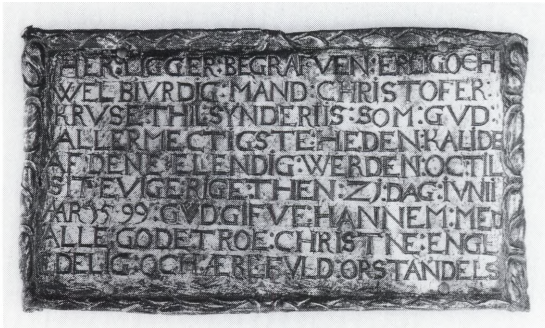 HER:LIGGER:BEGRAFVEN:ERLIGOCH
WELBIVRDIG:MAND:CHRISTOFER:
KRVSE:THILSYNDERIIS:SOM:GVD:
ALLERMECTIGSTE:HEDEN:KALIDE
AF:DENE:ELENDIG:WERDEN:OCTIL
SIT:EVIGE:RIGE:THEN:ZJ:DAG:IVNII
AAR:1599:GVD:GIFVE:HANNEM:MED
ALLE:GODE:TROE:CHRISTNE:ENGL
EDELIG:OCH:ÆREFVLD:ORSTANDELS